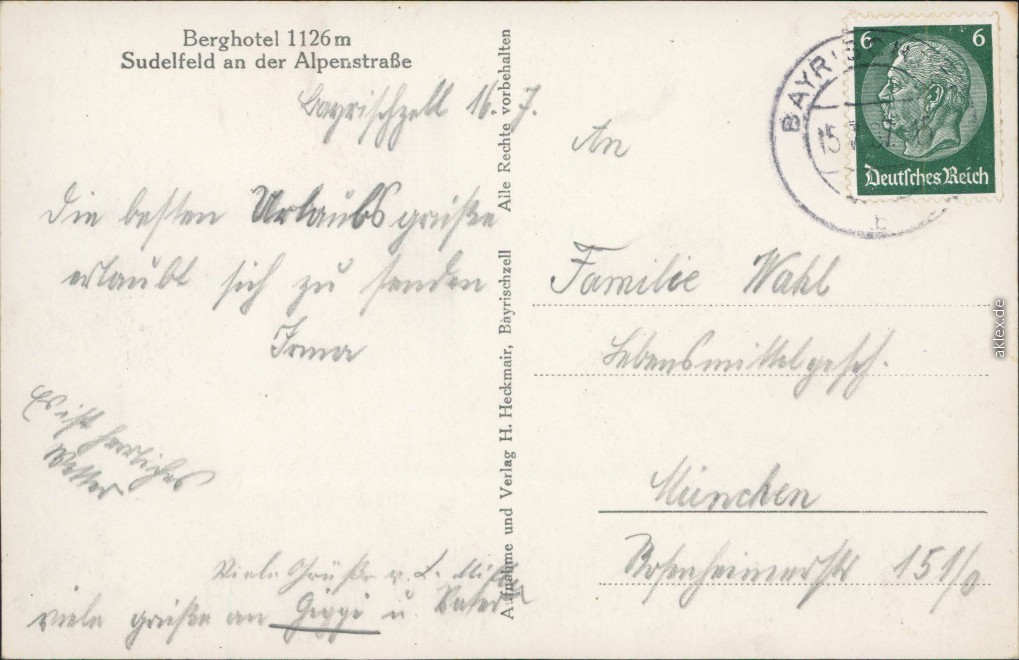 Berghotel 1126 m
Sudelfeld an der Alpenstraße
Bayrischzell 16. 7.
Die besten Urlaubsgrüße
erlaubt sich zu senden
Irma
Es ist herrliches
Wetter
Viele Grüße v. L.
viele grüße an Geppi u. Vater
Aufnahme und Verlag H. Heckmair, Bayrischzell Alle Rechte vorbehalten
BAYRISCHZELL
15.
b
6 6
Deutsches Reich
An
Familie Wahl
Lebensmittelgesch.
München
Rosenheimerstr 151/0
aklex.de